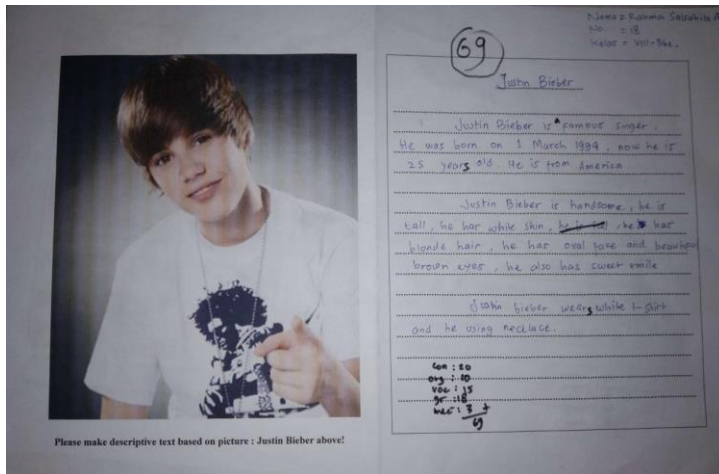 Nama = Rahma Salsabila A
No. = 18
Kelas = VIII-
69
Justin Bieber
Justin Bieber is a famous singer.
He was born on 1 March 1994, now he is
25 years old. He is from America
Justin Bieber is handsome, he is
tall, he has white skin, he is tall, he has
blonde hair, he has oval face and beautiful
brown eyes, he also has sweet smile
Justin bieber wears white t-shirt
and he using necklace.
Con : 20
org : 10
voc : 15
gr : 18
mec : +
69
Please make descriptive text based on picture : Justin Bieber above!